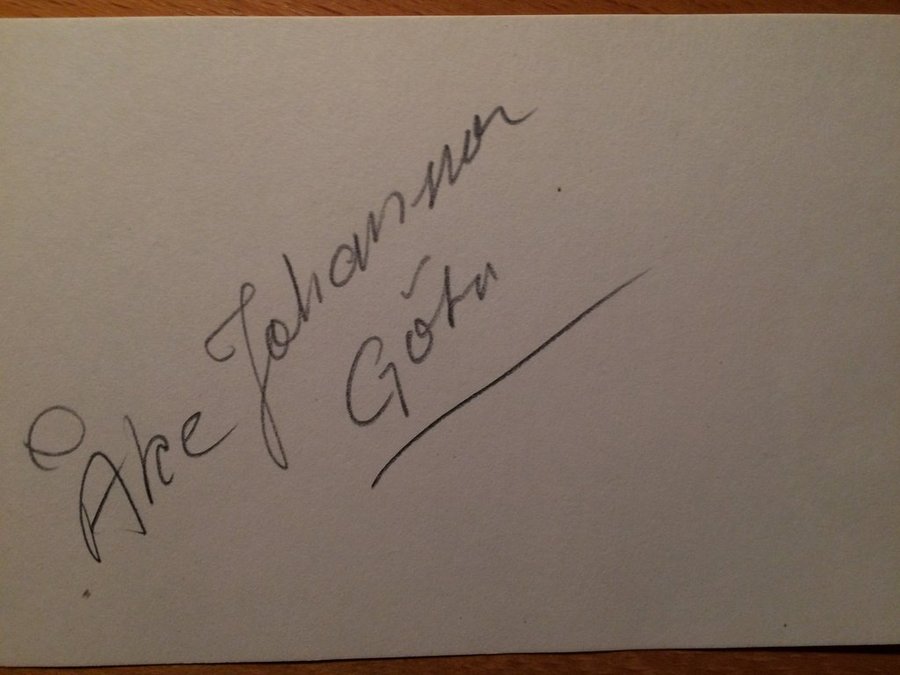 Åke Johansson
Göta